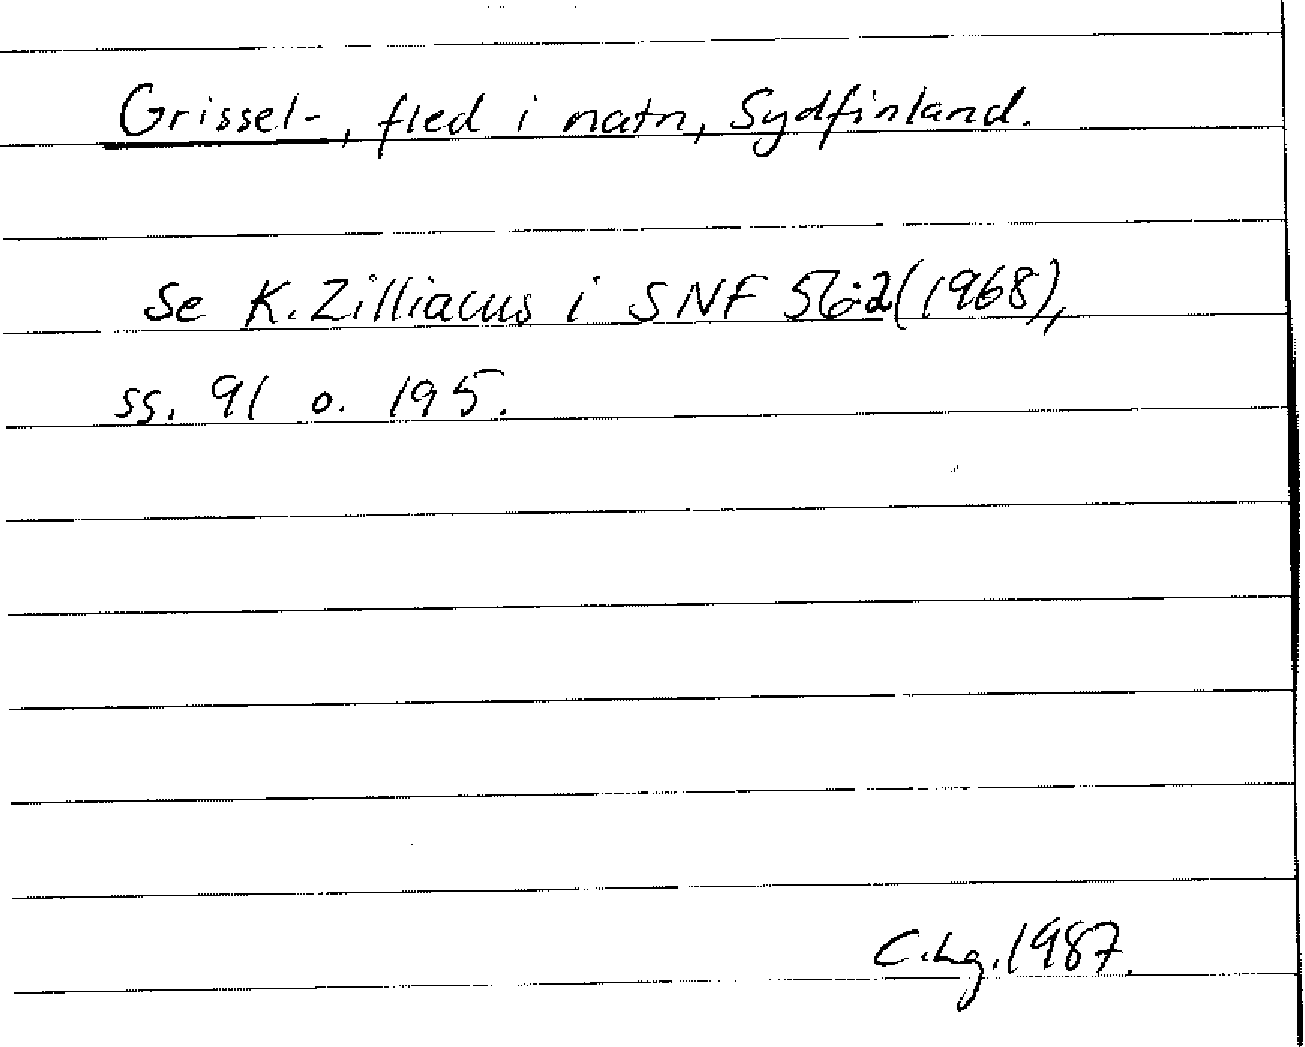 Grissel-, fled i natn, Sydfinland.
Se K. Zilliacus i SNF 56:2 (1968),
ss. 91 o. 195.
C. Lg. 1987.